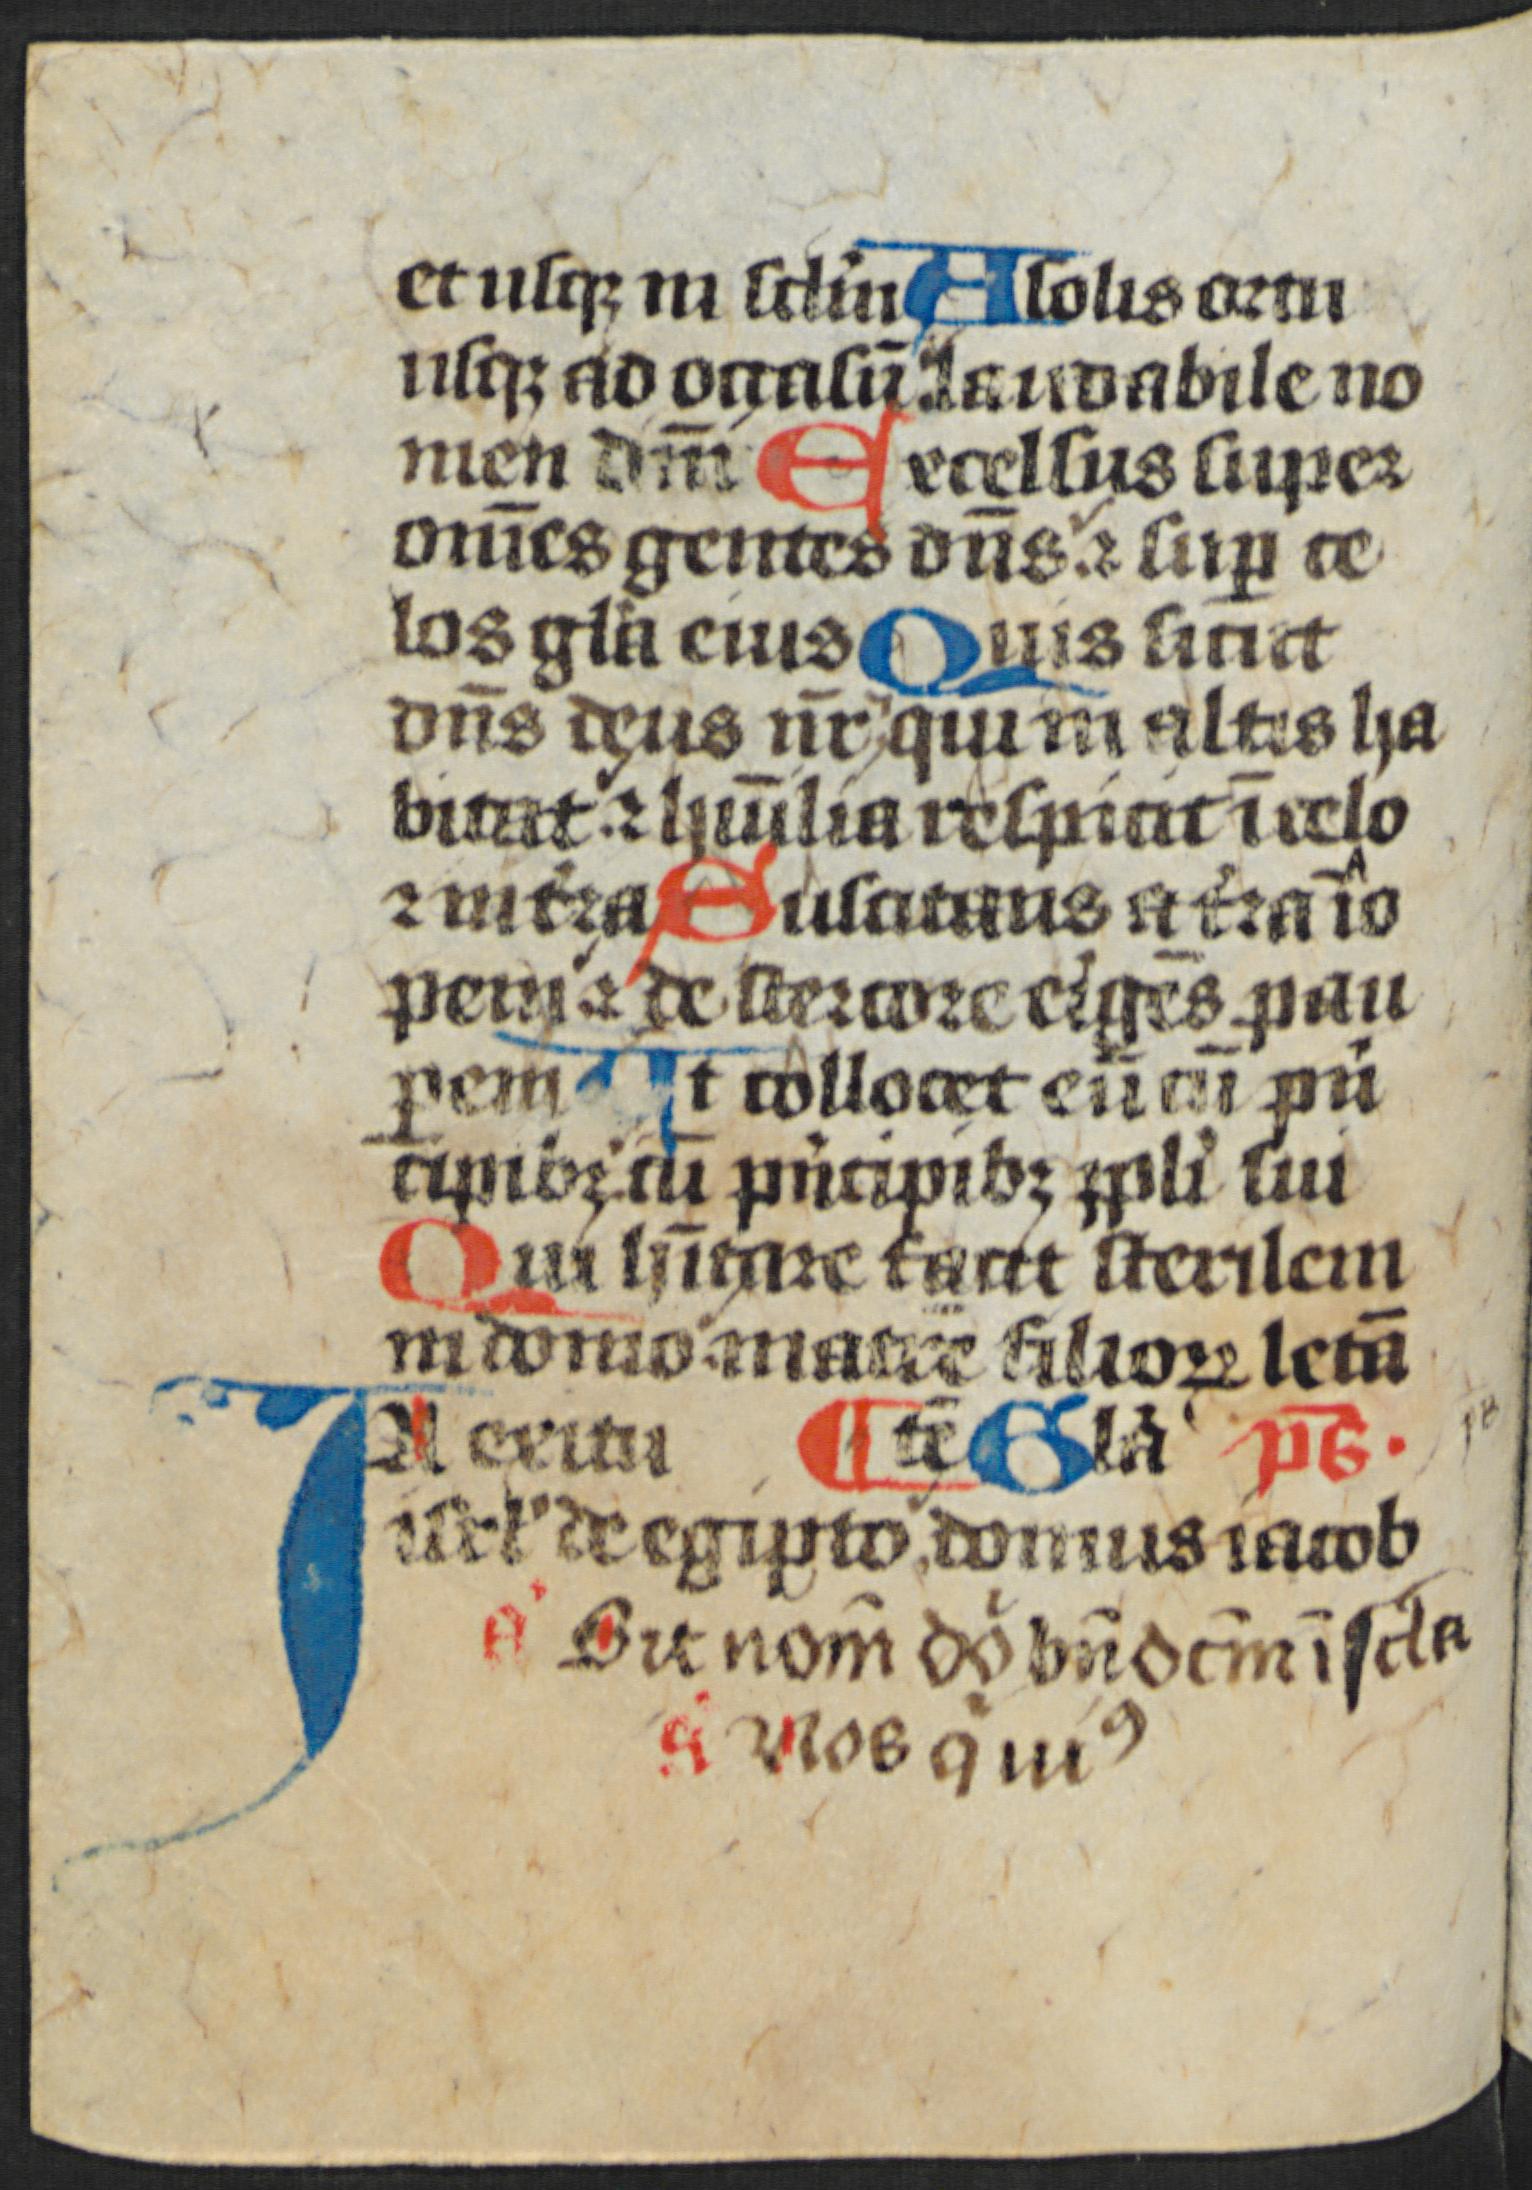 et usqꝫ in sclm̄ A solis ortu
usqꝫ ad occasū laudabile no
men dn̄i Excelsus super
om̄es gentes dn̄s ⁊ suꝑ ce
los gl̄a eius Quis sicut
dn̄s deus nr̄ qui in altis ha
bitat ⁊ hūilia respicit ī celo
⁊ in t̄ra Suscitans a t̄ra īo
pem ⁊ de stercore erigēs pau
ꝑem Ut collocet eū cū prī
cipibꝫ cū prīcipibꝫ ppl̄i sui
Qui hītare facit sterilem
in domo matrē filioꝝ letā
IN exitu Gl̄a ps̄.
isrl̄ de egipto domus iacob
a Sit nom̄ dō bn̄dcm̄ ī scl̄a
a Nos qui